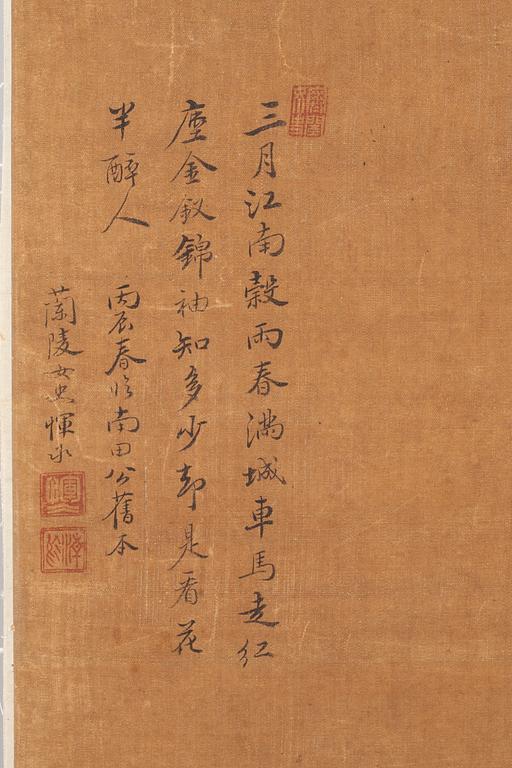 三月江南穀雨春滿城車馬走紅
塵金釵錦袖知多少却是看花
半醉人　丙辰春臨南田公舊本
蘭陵女史惲冰